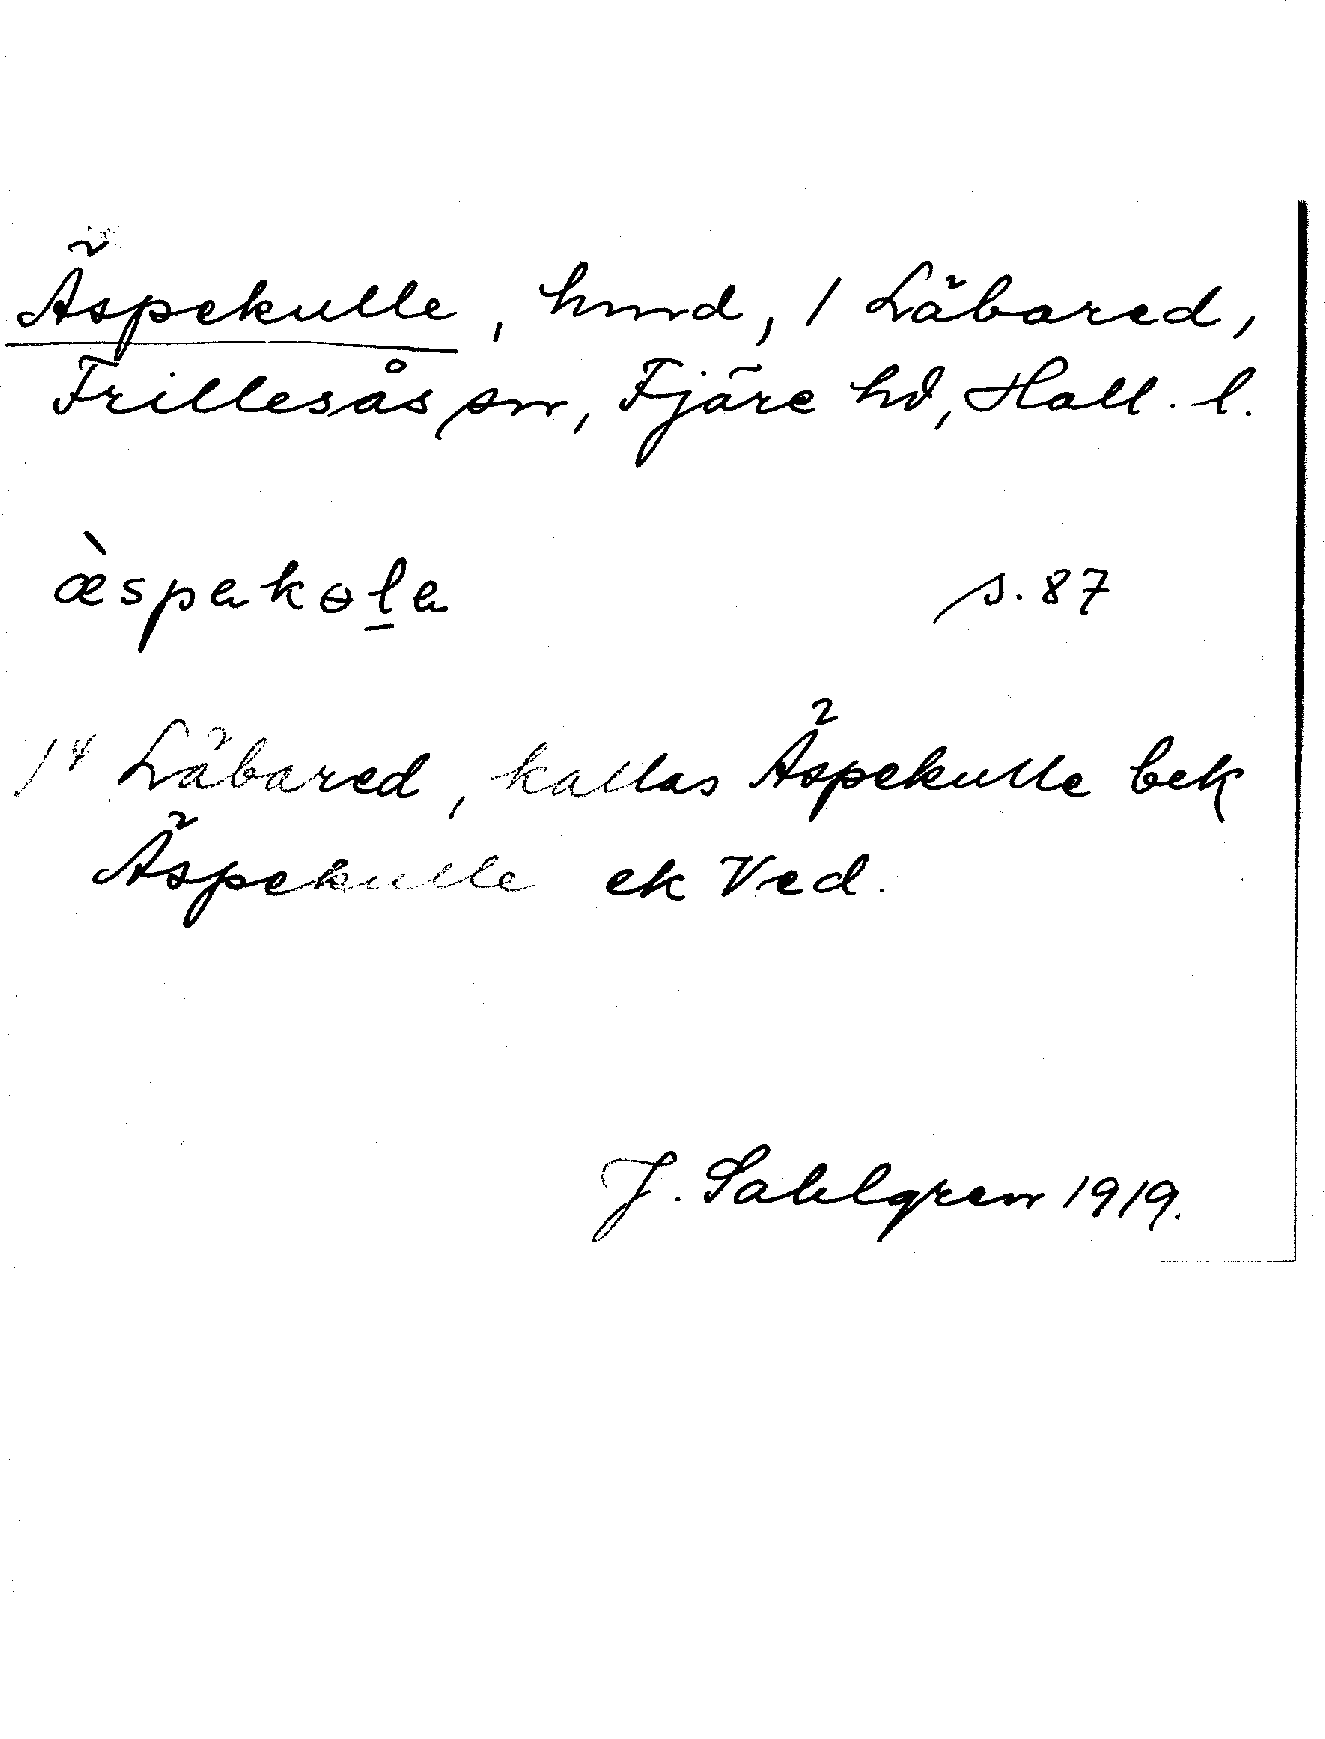 Äspekulle, hmd, 1 Läbared,
Frillesås sn, Fjäre hd, Hall. l.
æ̀spakɵl̠a s. 87
1⁴ Läbared, kallas Äspekulle bek
Äspekulle ek Ved.
J. Sahlgren 1919.